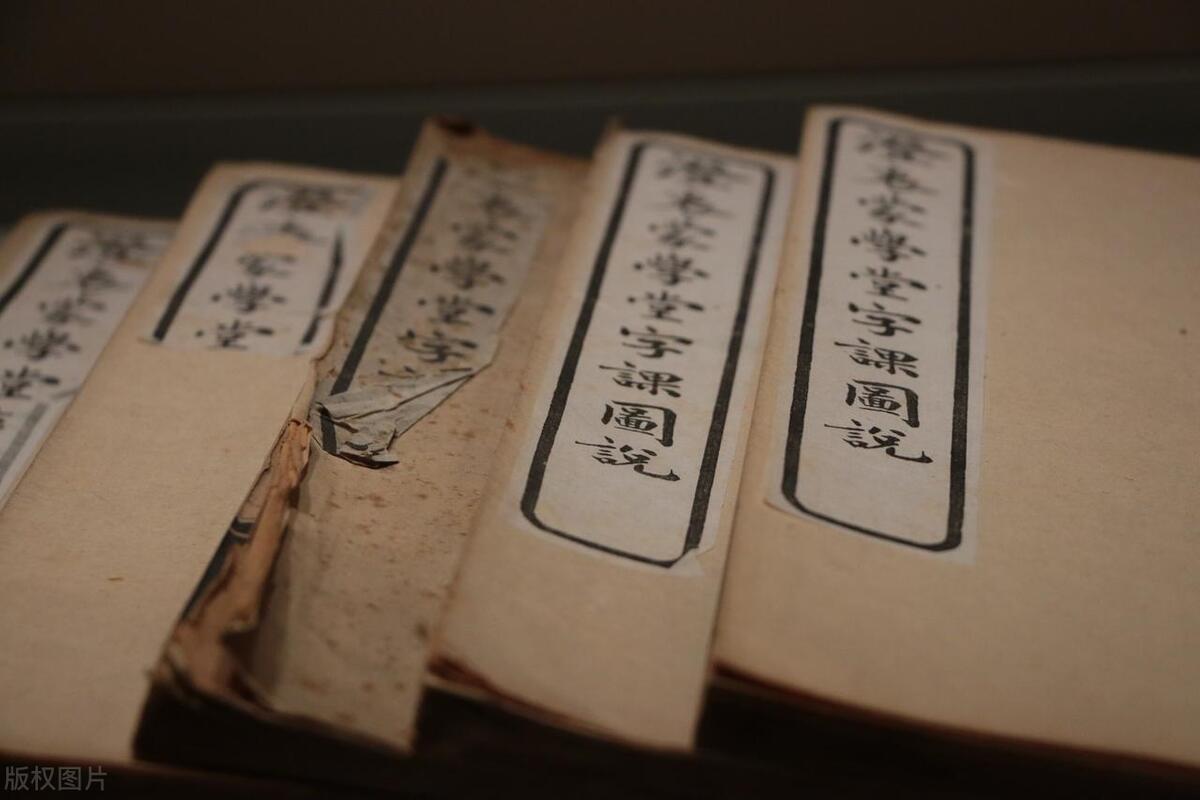 澄衷蒙學堂
學堂
衷蒙學堂字
澄衷蒙學堂字課圖說
澄衷蒙學堂字課圖說
版权图片